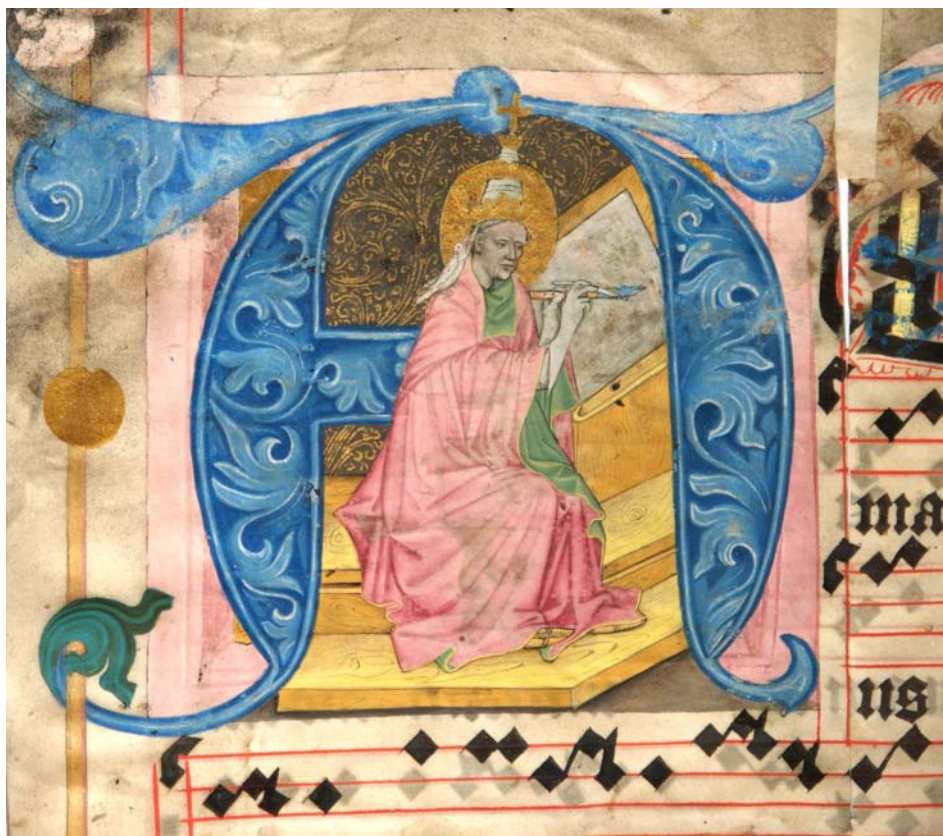 A
ma
us